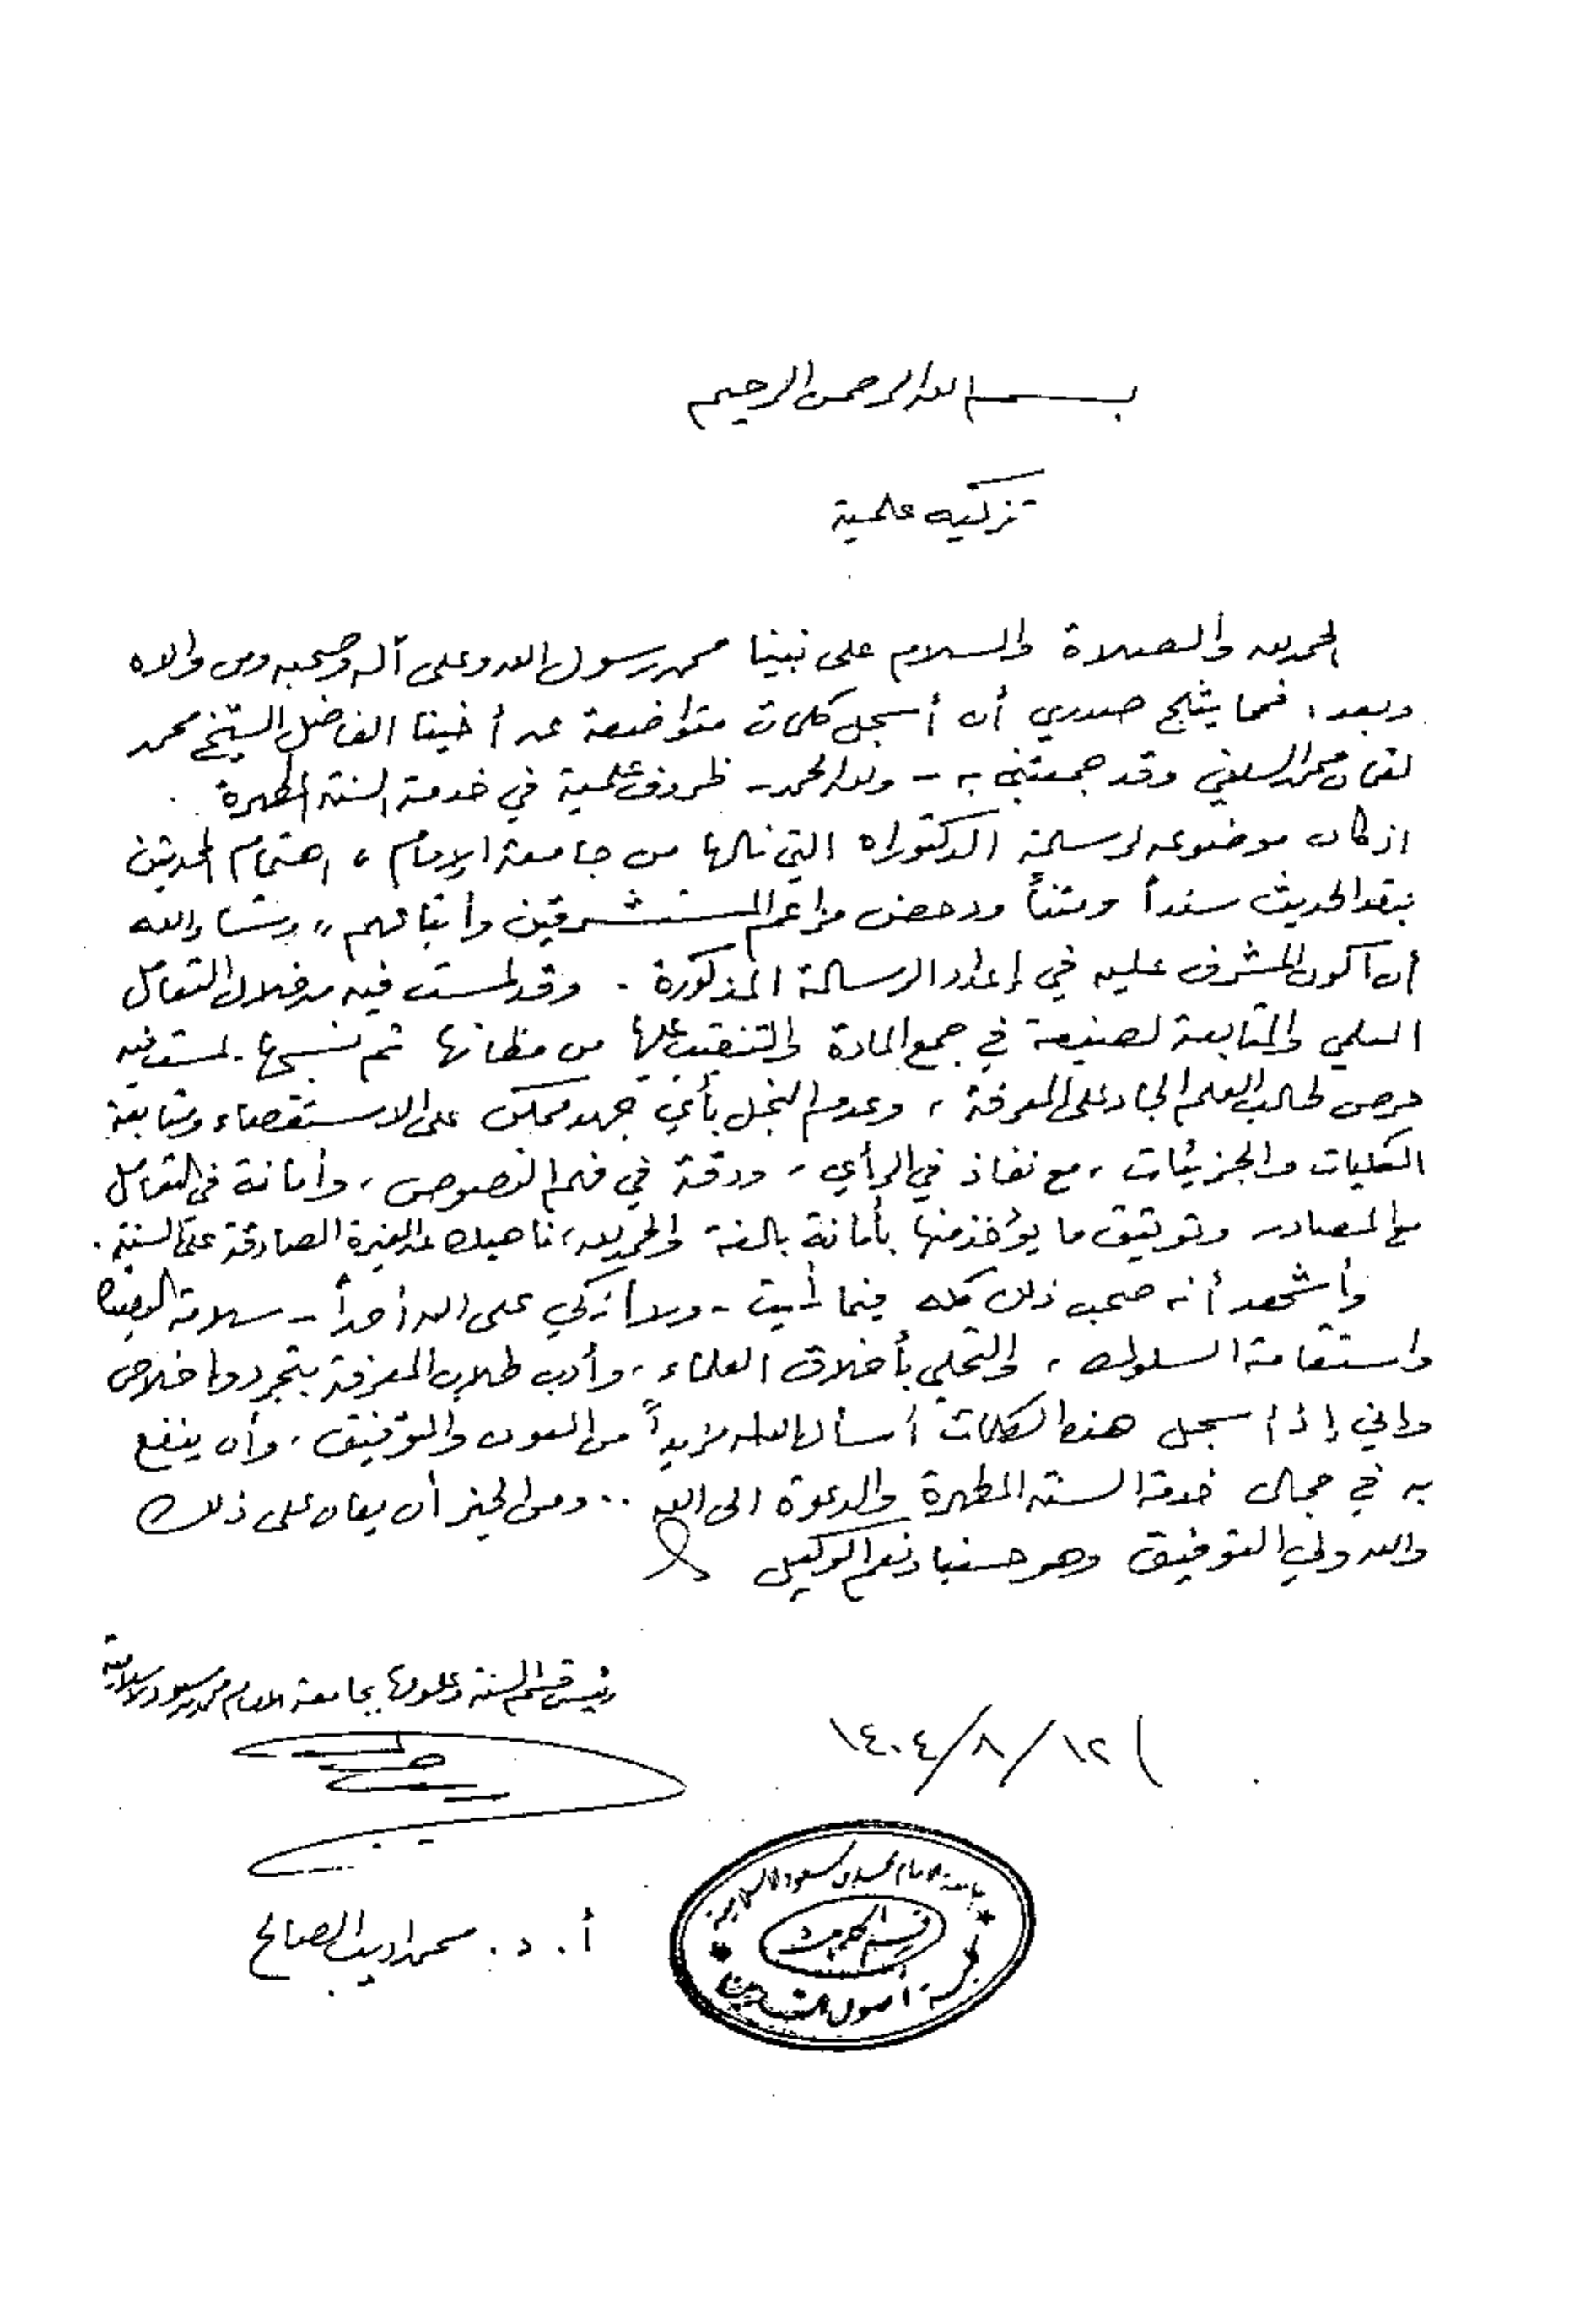 بسم الله الرحمن الرحيم
تزكيه علمية
الحمد لله والصلاة والسلام على نبينا محمد رسول الله وعلى آله وصحبه ومن والاه
وبعد، فمما يثلج صدري أن أسجل كلمات متواضعة عن أخينا الفاضل الشيخ محمد
لقمان محمد السلفي وقد جمعتني به - ولله الحمد - ظروف علمية في خدمة السنة المطهرة
اذ كان موضوعه لرسالة الدكتوراه التي نالها من جامعة الإمام، اهتمام المحدثين
بنقد الحديث سنداً ومتناً ودحض مزاعم المستشرقين وأتباعهم، وشاء الله
أن أكون المشرف عليه في إعداد الرسالة المذكورة. وقد لمست فيه من خلال التعامل
العلمي والمتابعة لصنيعه في جمع المادة والتنقيب عليها من مظانها ثم نسجها. لمست فيه
حرص طالب العلم الجاد على المعرفة، وعدم البخل بأي جهد ممكن على الاستقصاء ومتابعة
الكليات والجزئيات، مع نفاذ في الرأي، ودقة في فهم النصوص، وأمانة في التعامل
مع المصادر وتوثيق ما يؤخذ منها بأمانة بالغة والحمد لله، ناهيك عن الغيرة الصادقة على السنة.
وأشهد أنه صحب ذلك كله فيما رأيت - ولا أزكي على الله أحداً - سلامة العقيدة
واستقامة السلوك، والتحلي بأخلاق العلماء، وأدب طلاب المعرفة بتجرد وإخلاص
واني إذ أسجل هذه الكلمات أسأل الله له مزيداً من العون والتوفيق، وأن ينفع
به في مجال خدمة السنة المطهرة والدعوة الى الله .. ومن الخير أن يعان على ذلك
والله ولي التوفيق وهو حسبنا ونعم الوكيل
رئيس قسم السنة وعلومها بجامعة الامام محمد بن سعود الاسلامية
١٤٠٤/٨/١٢
أ. د. محمد اديب الصالح
جامعة الامام محمد بن سعود الاسلامية
كلية أصول الدين